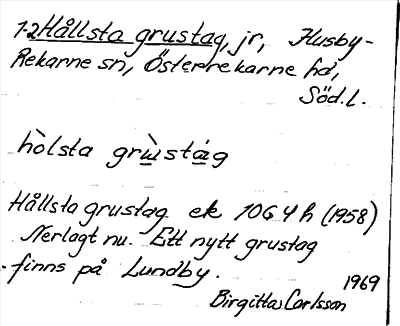 1-2 Hållsta grustag, jr, Husby-
Rekarne sn, Österrekarne hd,
Söd.l.
hòlsta grùstág
Hållsta grustag ek 10G 4h (1958)
Nerlagt nu. Ett nytt grustag
finns på Lundby.
1969
Birgitta Carlsson